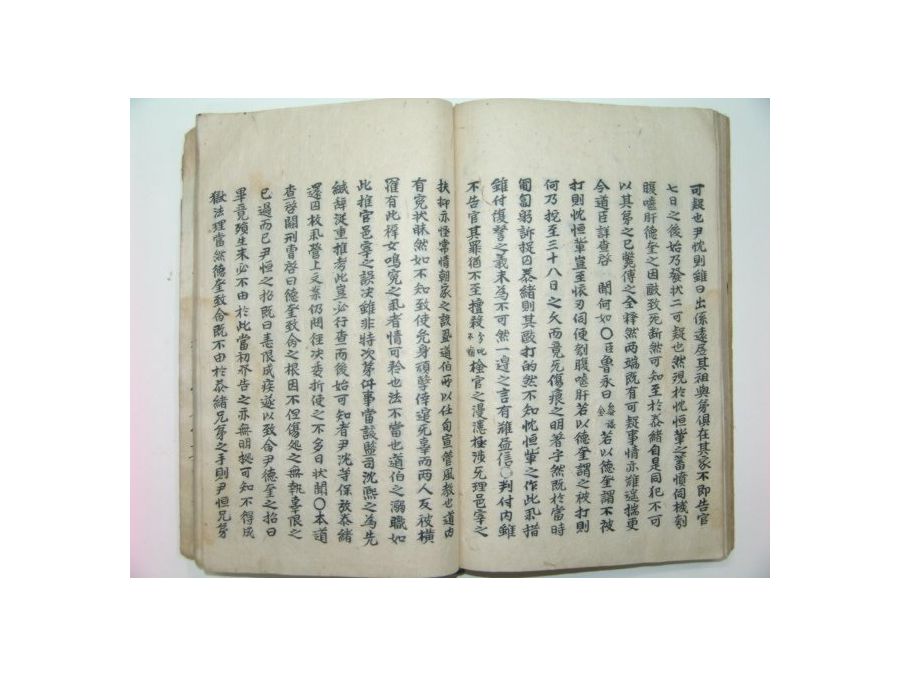 可疑也尹忱則雖曰出係遠居其祖與弟俱在其家不即告官
七日之後始乃發狀二可疑也然現於忱恒輩之蓄憤伺機刻
腹噬肝德奎之因毆致死斷然可知至於泰緒自是同犯不可
以其弟之已斃傅之全釋然兩端既有可疑事情亦難遙揣更
今道臣詳查啓聞何如〇臣魯永曰若以德奎謂不被
打則忱恒輩豈至懷刃伺便刻腹噬肝若以德奎謂之被打則
何乃挽至三十八日之久而竟死傷痕之明著乎然既於當時
匍匐躬訴捉囚泰緒則其毆打的然不知忱恒輩之作此氣措
雖付復讐之義未為不可然一邊之言有難盡信〇判付內雖
不告官其罪猶不至擅殺檢官之漫漶極涉死理邑宰之
扶抑亦怪常情朝家之設置道伯所以任旬宣管風教也道內
有冤狀昧然如不知致使兇身頑孽倖逭死辜而兩人反被橫
罹有此稚女鳴冤之氣者情可矜也法不當也道伯之溺職如
此推官邑宰之誤決雖非特次第件事當該監司沈熙之為先
緘辭從重推考此豈必行查而後始可知者尹沈等保放泰緒
還囚枚氣營上文案仍問徑決委折使之不多日狀聞〇本道
查啓關刑曹啓曰德奎致命之根因不但傷處之無執辜限之
已過而已尹恒之招既曰恚恨成疾遂以致命尹德奎之招曰
畢竟殞生未必不由於此當初不告之亦無明據可知不得成
獄法理當然德奎致命既不由於泰緒兄弟之手則尹恒兄弟